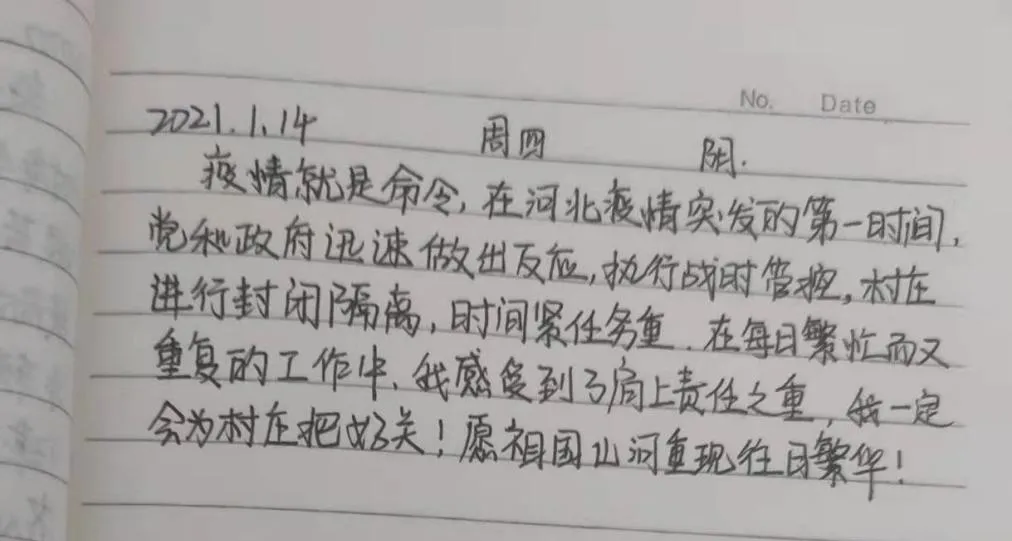 No. Date
2021.1.14 周四 阴.
疫情就是命令,在河北疫情突发的第一时间,
党和政府迅速做出反应,执行战时管控,村庄
进行封闭隔离,时间紧任务重.在每日繁忙而又
重复的工作中、我感受到了肩上责任之重,我一定
会为村庄把好关!愿祖国山河重现往日繁华!